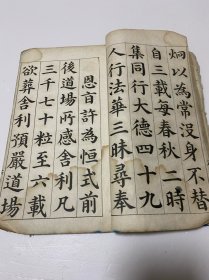 炯以為常沒身不替
自三載每春秋二時
集同行大德四十九
人行法華三昧尋奉
恩旨許為恒式前
後道場所感舍利凡
三千七十粒至六載
欲葬舍利預嚴道場